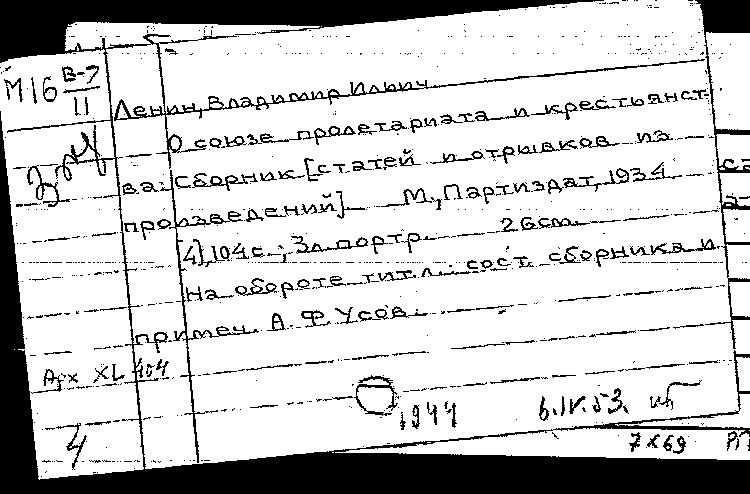 М16 В-7
11
Ленин, Владимир Ильич
О союзе пролетариата и крестьянст-
ва: Сборник [статей и отрывков из
произведений]. М., Партиздат, 1934.
[4], 104 с.; 3 л. портр. 26 см.
На обороте тит. л.: сост. сборника и
примеч. А. Ф. Усов.
Арх XL 404
1944 6.IV.53.
4
7 X 69